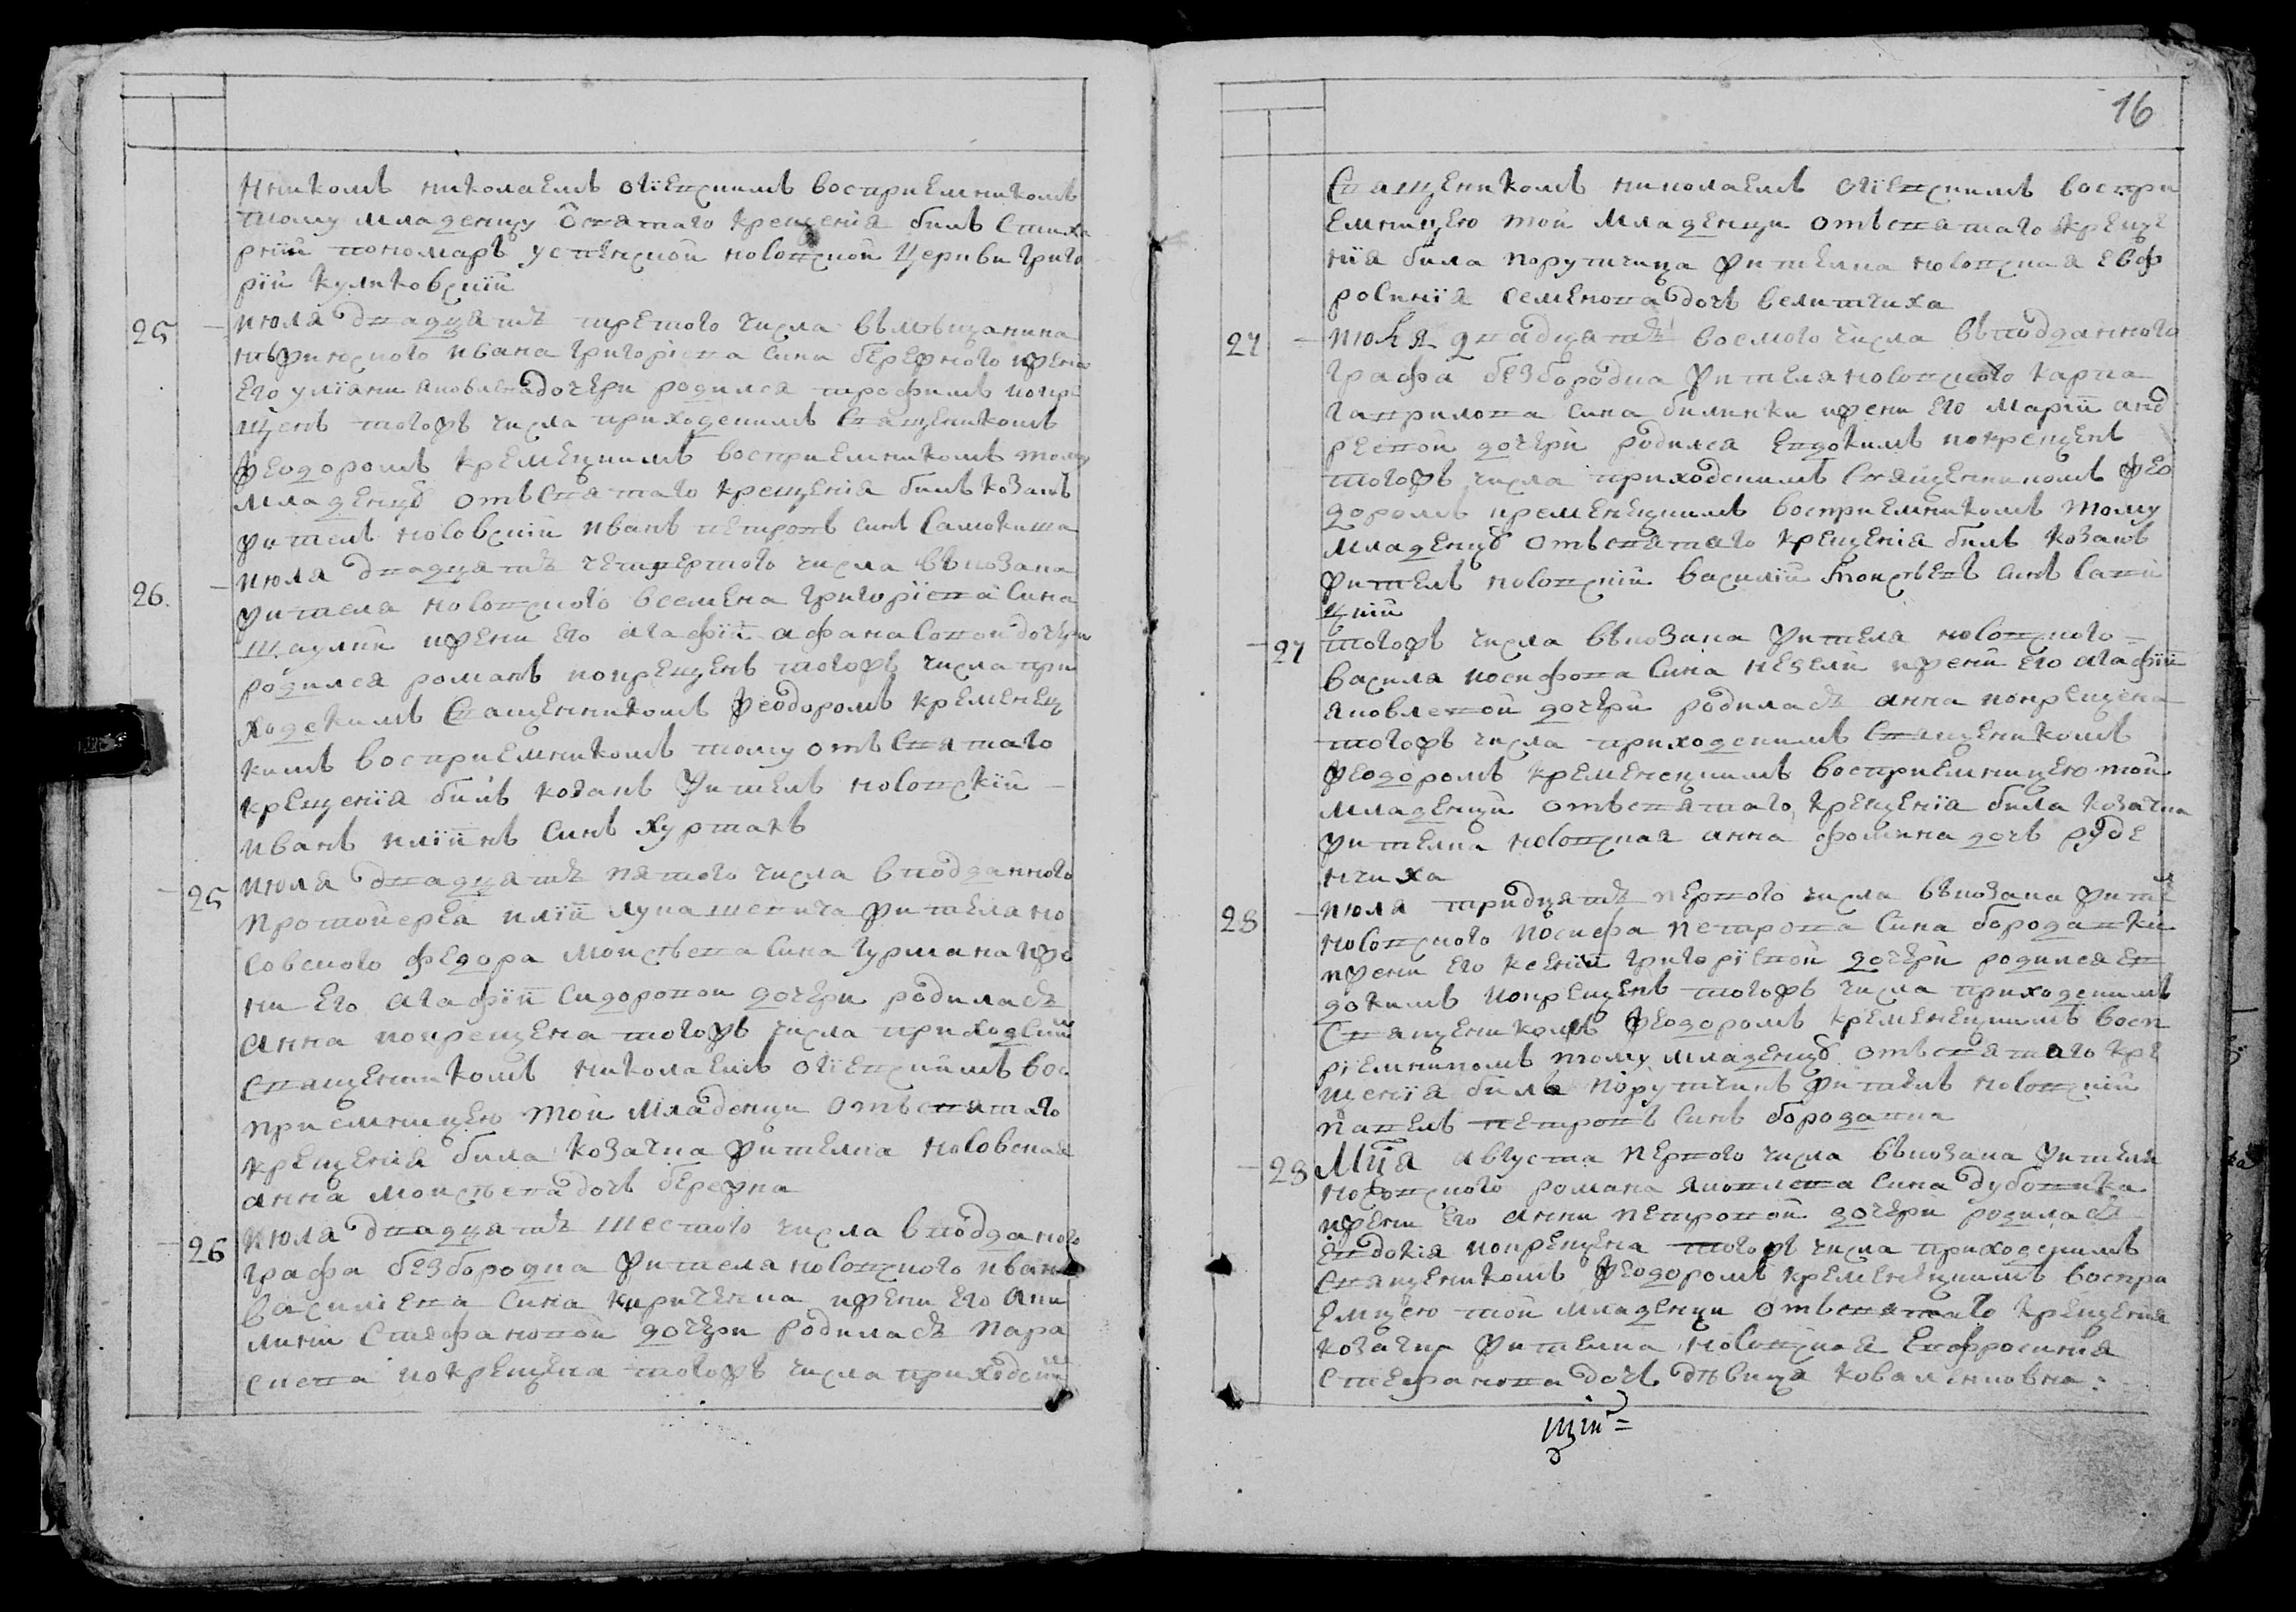 нникомъ николаемъ огiевскимъ восприемникомъ
тому младенцу о святаго крещенiя билъ стиха
рнiй пономаръ успенской носовской церкви григо
рiй куликовскiй
25 июля двадцятъ третого числа въ мѣщанина
нѣжинского ивана григорiева сина бережного ижени
его улiяни яковлева дочери родился трофимъ икре
щенъ тогожъ числа приходскимъ священикомъ
феодоромъ кременецкимъ восприемникомъ тому
младенцу отъ святаго крещенiя билъ козакъ
житель носовскiй иванъ петровъ синъ самокиша
26. июля двадцятъ четвертого числа въ козака
жителя носовского семена григорiева сина
шадлии ижени его агафiи афанасовой дочери
родился романъ и окрещенъ тогожъ числа при
ходскимъ священникомъ феодоромъ кременец
кимъ восприемникомъ тому отъ святаго
крещенiя билъ козакъ житель носовскiй
иванъ илiинъ синъ хуртакъ
25 июля двадцятъ пятого числа в подданного
протоиерея илiи лукашевича жителя но
совского федора моисѣева сина гурмана иже
ни его агафiи сидоровой дочери родиласъ
анна и окрещена тогожъ числа приходским
священникомъ николаемъ огiевскимъ вос
приемницею той младенци отъ святаго
крещенiя била козачка жителка носовская
анна моисѣева дочъ бережна
26 июля двадцятъ шестого числа в подданого
графа безбородка жителя носовского ивана
василiева сина кириченка ижени его аки
лини стефановой дочери родиласъ пара
скева и окрещена тогожъ числа приходским
16
священикомъ николаемъ огiевскимъ воспри
емницею той младенци отъ святаго креще
нiя била порутчица жителка носовская евф
росинiя семенова дочъ велитчиха
27 июля двадцятъ восмого числа въ подданного
графа безбородка жителя носовского карпа
гаврилова сина билинки ижени его марiи анд
реевой дочери родился евдокимъ и окрещенъ
тогожъ числа приходскимъ священникомъ фео
доромъ кременецкимъ восприемникомъ тому
младенцу отъ святаго крещенiя билъ козакъ
житель носовскiй василiй моисѣевъ синъ сави
цкiй
27 тогожъ числа въ козака жителя носовского
василя иосифова сина недели ижени его агафiи
яковлевой дочери родиласъ анна и окрещена
тогожъ числа приходскимъ священикомъ
феодоромъ кременецкимъ восприемницею той
младенци отъ святаго крещенiя била козачка
жителка носовская анна фомина дочъ руде
нчиха
28 июля тридцятъ первого числа въ козака жите
носовского иосифа петрова сина бородавки
ижени его ксенiи григорiевой дочери родился ев
докимъ и окрещенъ тогожъ числа приходскимъ
священикомъ феодоромъ кременецкимъ восп
рiемникомъ тому младенцу отъ святаго кре
щенiя билъ порутчикъ житель носовскiй
павелъ петровъ синъ бородавка
28 Мця августа первого числа въ козака жителя
носовского романа яковлева сина дубовика
ижени его анни петровой дочери родиласъ
евдокiя и окрещена тогожъ числа приходскимъ
священикомъ феодоромъ кременецкимъ воспри
емицею той младенци отъ святаго крещения
козачка жителка носовская евфросинiя
стефанова дочъ дѣвица коваленковна: